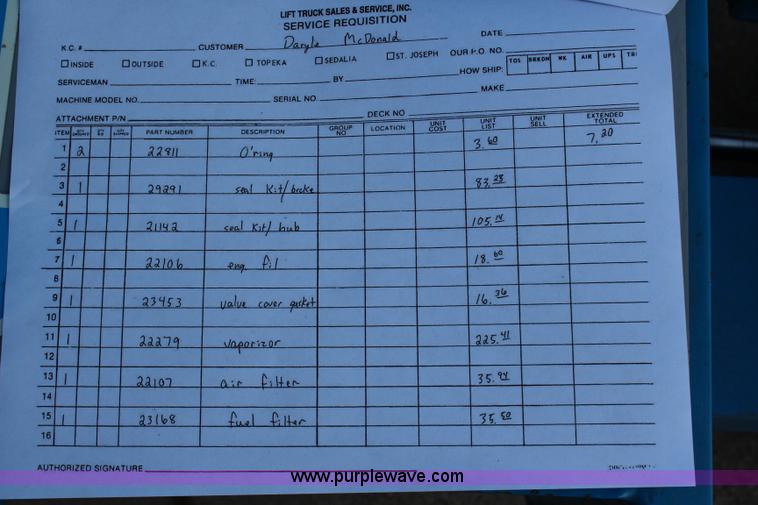 LIFT TRUCK SALES & SERVICE, INC.
SERVICE REQUISITION
K.C. # CUSTOMER Daryle McDonald DATE
INSIDE OUTSIDE K.C. TOPEKA SEDALIA ST. JOSEPH OUR P.O. NO.
SERVICEMAN TIME: BY HOW SHIP: TOS BRKDN WK AIR UPS
MACHINE MODEL NO. SERIAL NO. MAKE
ATTACHMENT P/N DECK NO
ITEM PART NUMBER DESCRIPTION GROUP NO LOCATION UNIT COST UNIT LIST UNIT SELL EXTENDED TOTAL
1 2 22811 O'ring 3.60 7.20
2
3 1 29291 seal Kit/brake 83.28
4
5 1 21142 seal Kit/hub 105.14
6
7 1 22106 eng. fil 18.60
8
9 1 23453 value cover gasket 16.36
10
11 1 22279 vaporizor 225.41
12
13 1 22107 air filter 35.94
14
15 1 23168 fuel filter 35.50
16
AUTHORIZED SIGNATURE
www.purplewave.com